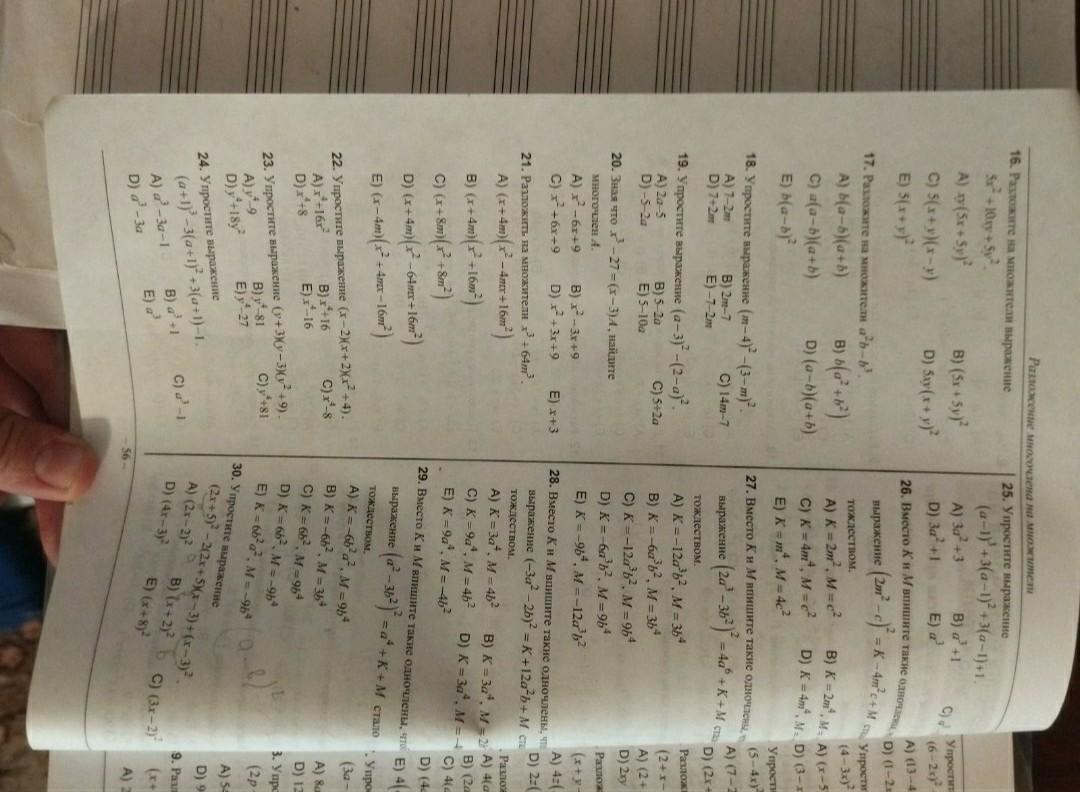 Разложение многочлена на множители
16. Разложите на множители выражение
5x² + 10xy + 5y².
A) xy(5x + 5y)² B) (5x + 5y)²
C) 5(x + y)(x − y) D) 5xy(x + y)²
E) 5(x + y)²
17. Разложите на множители a²b − b³.
A) b(a − b)(a + b) B) b(a² + b²)
C) a(a − b)(a + b) D) (a − b)(a + b)
E) b(a − b)²
18. Упростите выражение (m − 4)² − (3 − m)².
A) 7−2m B) 2m−7 C) 14m−7
D) 7+2m E) −7−2m
19. Упростите выражение (a − 3)² − (2 − a)².
A) 2a-5 B) 5−2a C) 5+2a
D) -5-2a E) 5−10a
20. Зная что x³ − 27 = (x − 3)A, найдите
многочлен A.
A) x² − 6x + 9 B) x² − 3x + 9
C) x² + 6x + 9 D) x² + 3x + 9 E) x + 3
21. Разложить на множители x³ + 64m³.
A) (x + 4m)(x² − 4mx + 16m²)
B) (x + 4m)(x² + 16m²)
C) (x + 8m)(x² + 8m²)
D) (x + 4m)(x² − 64mx + 16m²)
E) (x − 4m)(x² + 4mx − 16m²)
22. Упростите выражение (x − 2)(x + 2)(x² + 4).
A) x⁴+16x² B) x⁴+16 C) x⁴-8
D) x⁴+8 E) x⁴−16
23. Упростите выражение (y + 3)(y − 3)(y² + 9).
A) y⁴−9 B) y⁴−81 C) y⁴+81
D) y⁴+18y² E) y⁴-27
24. Упростите выражение
(a + 1)³ − 3(a + 1)² + 3(a + 1) − 1.
A) a³ − 3a − 1 B) a³ + 1 C) a³ − 1
D) a³ − 3a E) a³
25. Упростите выражение
(a − 1)³ + 3(a − 1)² + 3(a − 1) + 1.
A) 3a² + 3 B) a³ + 1 C)
D) 3a² + 1 E) a³
26. Вместо K и M впишите такие одночлены,
выражение (2m² − c)² = K − 4m²c + M
тождеством.
A) K = 2m², M = c² B) K = 2m⁴, M
C) K = 4m⁴, M = c² D) K = 4m⁴, M
E) K = m⁴, M = 4c²
27. Вместо K и M впишите такие одночлены,
выражение (2a³ − 3b²)² = 4a⁶ + K + M
тождеством.
A) K = −12a³b², M = 3b⁴
B) K = −6a³b², M = 3b⁴
C) K = −12a³b², M = 9b⁴
D) K = −6a³b², M = 9b⁴
E) K = −9b⁴, M = −12a³b²
28. Вместо K и M впишите такие одночлены,
выражение (−3a² − 2b)² = K + 12a²b + M
тождеством.
A) K = 3a⁴, M = 4b² B) K = 3a⁴, M =
C) K = 9a⁴, M = 4b² D) K = 3a⁴, M =
E) K = 9a⁴, M = −4b²
29. Вместо K и M впишите такие одночлены,
выражение (a² − 3b²)² = a⁴ + K + M стало
тождеством.
A) K = −6b²a², M = 9b⁴
B) K = −6b², M = 3b⁴
C) K = 6b², M = 9b⁴
D) K = 6b², M = −9b⁴
E) K = 6b²a², M = −9b⁴
30. Упростите выражение
(2x + 5)² − 2(2x + 5)(x − 3) + (x − 3)².
A) (2x − 2)² B) (x + 2)² C) (3x − 2)²
D) (4x − 3)² E) (x + 8)²
– 56 –